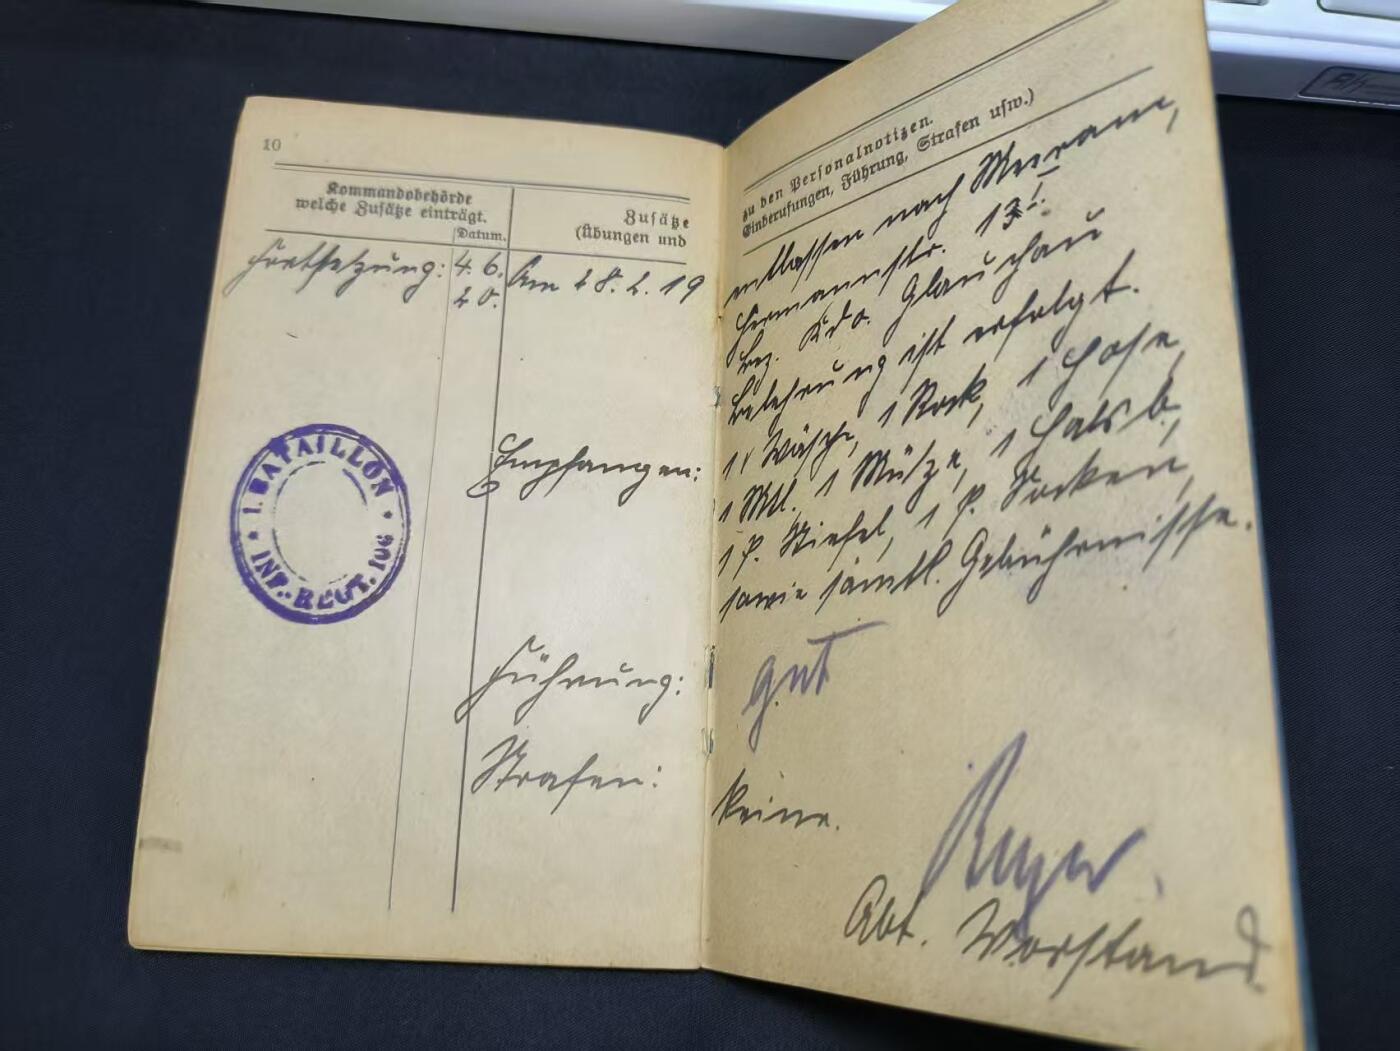 10
Kommandobehörde
welche Zusätze einträgt.
Datum.
Zusätze
(Übungen und
Fortsetzung:
4. 6.
20.
Am 28. 2. 19
Empfangen:
Führung:
Strafen:
I. BATAILLON
INF.-REGT. 106
zu den Personalnotizen.
Einberufungen, Führung, Strafen usw.)
entlassen nach Meerane,
Hermannstr. 13I.
Bez. Kdo. Glauchau
Belehrung ist erfolgt.
1 Wäsche, 1 Rock, 1 Hose,
1 Mtl. 1 Mütze, 1 Halsb.,
1 P. Stiefel, 1 P. Socken,
sowie sämtl. Gebührnisse.
gut
keine.
Abt. Vorstand.